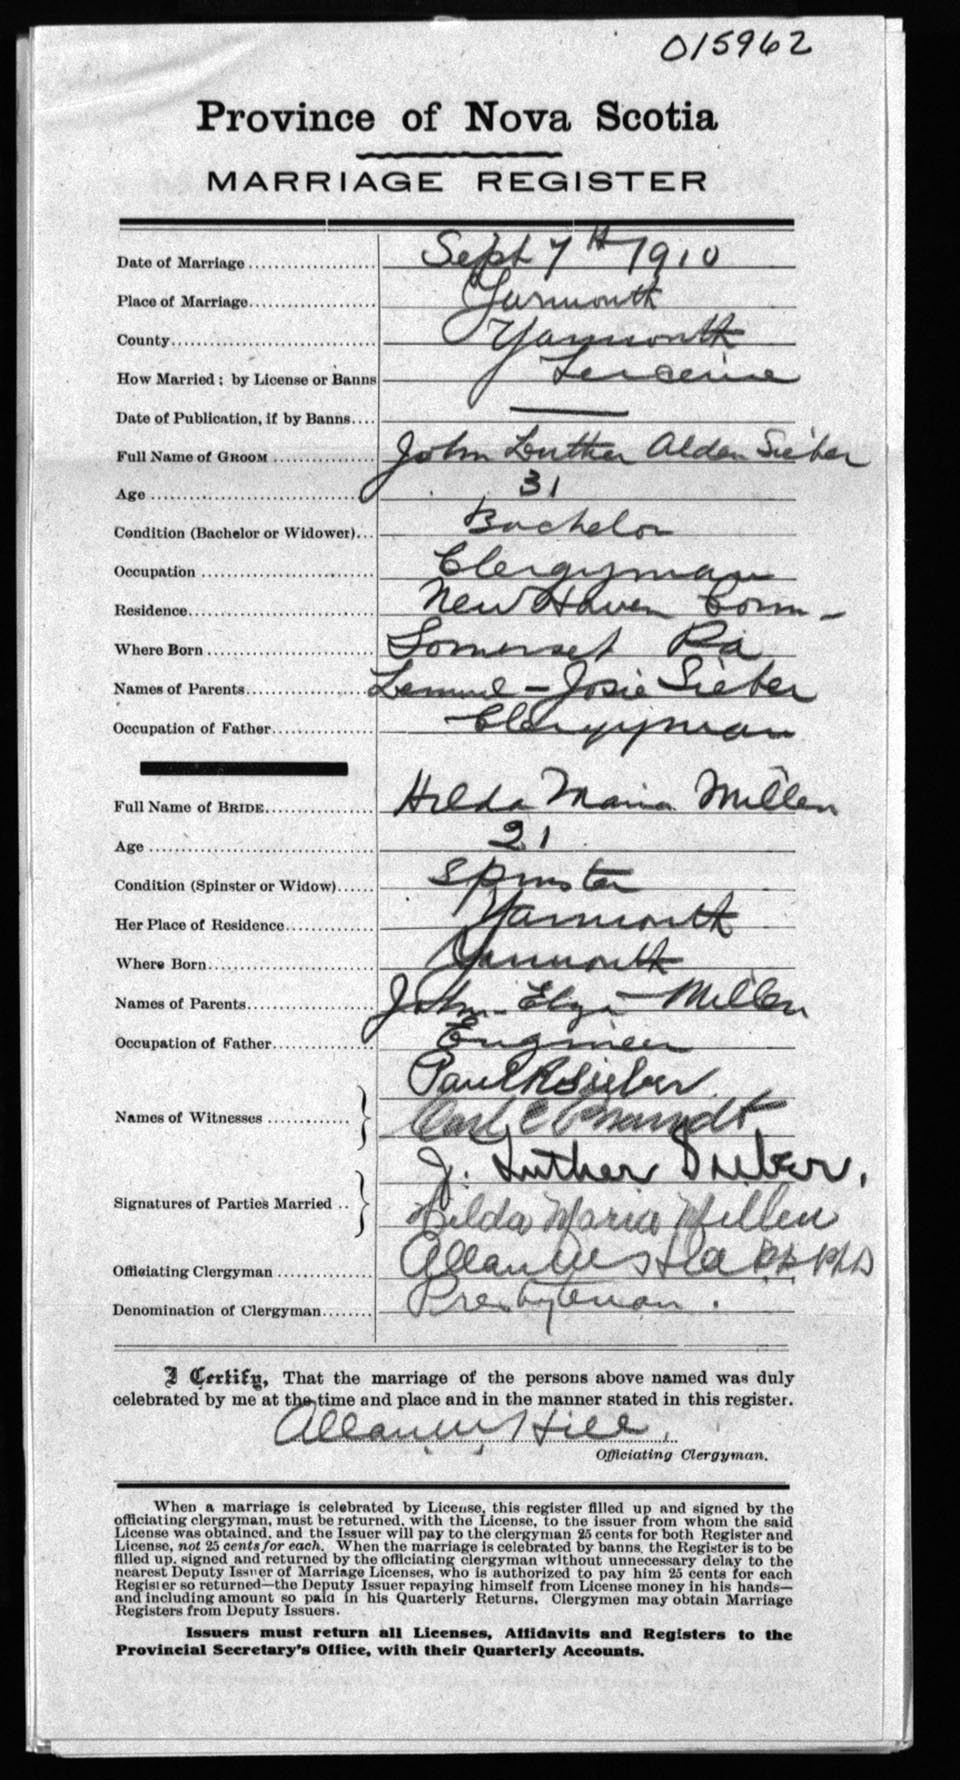 015962
Province of Nova Scotia
MARRIAGE REGISTER
Date of Marriage Sept 7th 1910
Place of Marriage Yarmouth
County Yarmouth
How Married; by License or Banns License
Date of Publication, if by Banns —
Full Name of GROOM John Luther Alden Sieber
Age 31
Condition (Bachelor or Widower) Bachelor
Occupation Clergyman
Residence New Haven Conn -
Where Born Somerset Pa
Names of Parents Lemuel - Josie Sieber
Occupation of Father Clergyman
Full Name of BRIDE Hilda Maria Millen
Age 21
Condition (Spinster or Widow) Spinster
Her Place of Residence Yarmouth
Where Born Yarmouth
Names of Parents John - Eliza - Millen
Occupation of Father Engineer
Names of Witnesses Paul R Sieber
Carl C Brandt
Signatures of Parties Married J. Luther Sieber.
Hilda Maria Millen
Officiating Clergyman Allan
Denomination of Clergyman Presbyterian.
I Certify, That the marriage of the persons above named was duly
celebrated by me at the time and place and in the manner stated in this register.
Hill
Officiating Clergyman.
When a marriage is celebrated by License, this register filled up and signed by the
officiating clergyman, must be returned, with the License, to the issuer from whom the said
License was obtained, and the Issuer will pay to the clergyman 25 cents for both Register and
License, not 25 cents for each. When the marriage is celebrated by banns, the Register is to be
filled up, signed and returned by the officiating clergyman without unnecessary delay to the
nearest Deputy Issuer of Marriage Licenses, who is authorized to pay him 25 cents for each
Register so returned—the Deputy Issuer repaying himself from License money in his hands—
and including amount so paid in his Quarterly Returns. Clergymen may obtain Marriage
Registers from Deputy Issuers.
Issuers must return all Licenses, Affidavits and Registers to the
Provincial Secretary's Office, with their Quarterly Accounts.